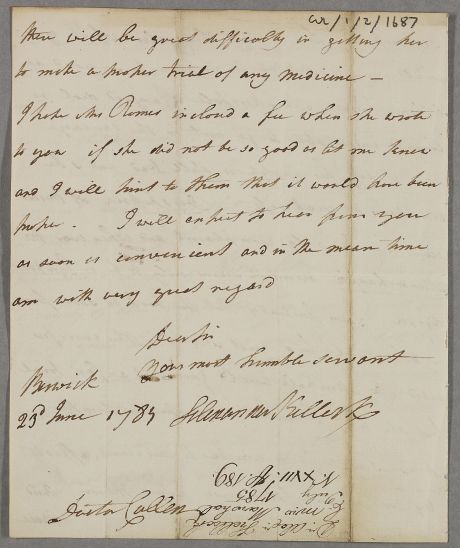 CUL/1/2/1687
there will be great difficulty in getting her
to make a proper trial of any medicine —
I hope Mrs Romer inclosed a fee when she wrote
to you if she did not be so good as let me know
and I will hint to them that it would have been
proper. I will expect to hear from you
as soon as convenient and in the mean time
am with very great regard
Dear Sir
Your most humble servant
Berwick
23d June 1785
Alexander
Doctor Cullen
1785
July
N. XVIII. p. 189.